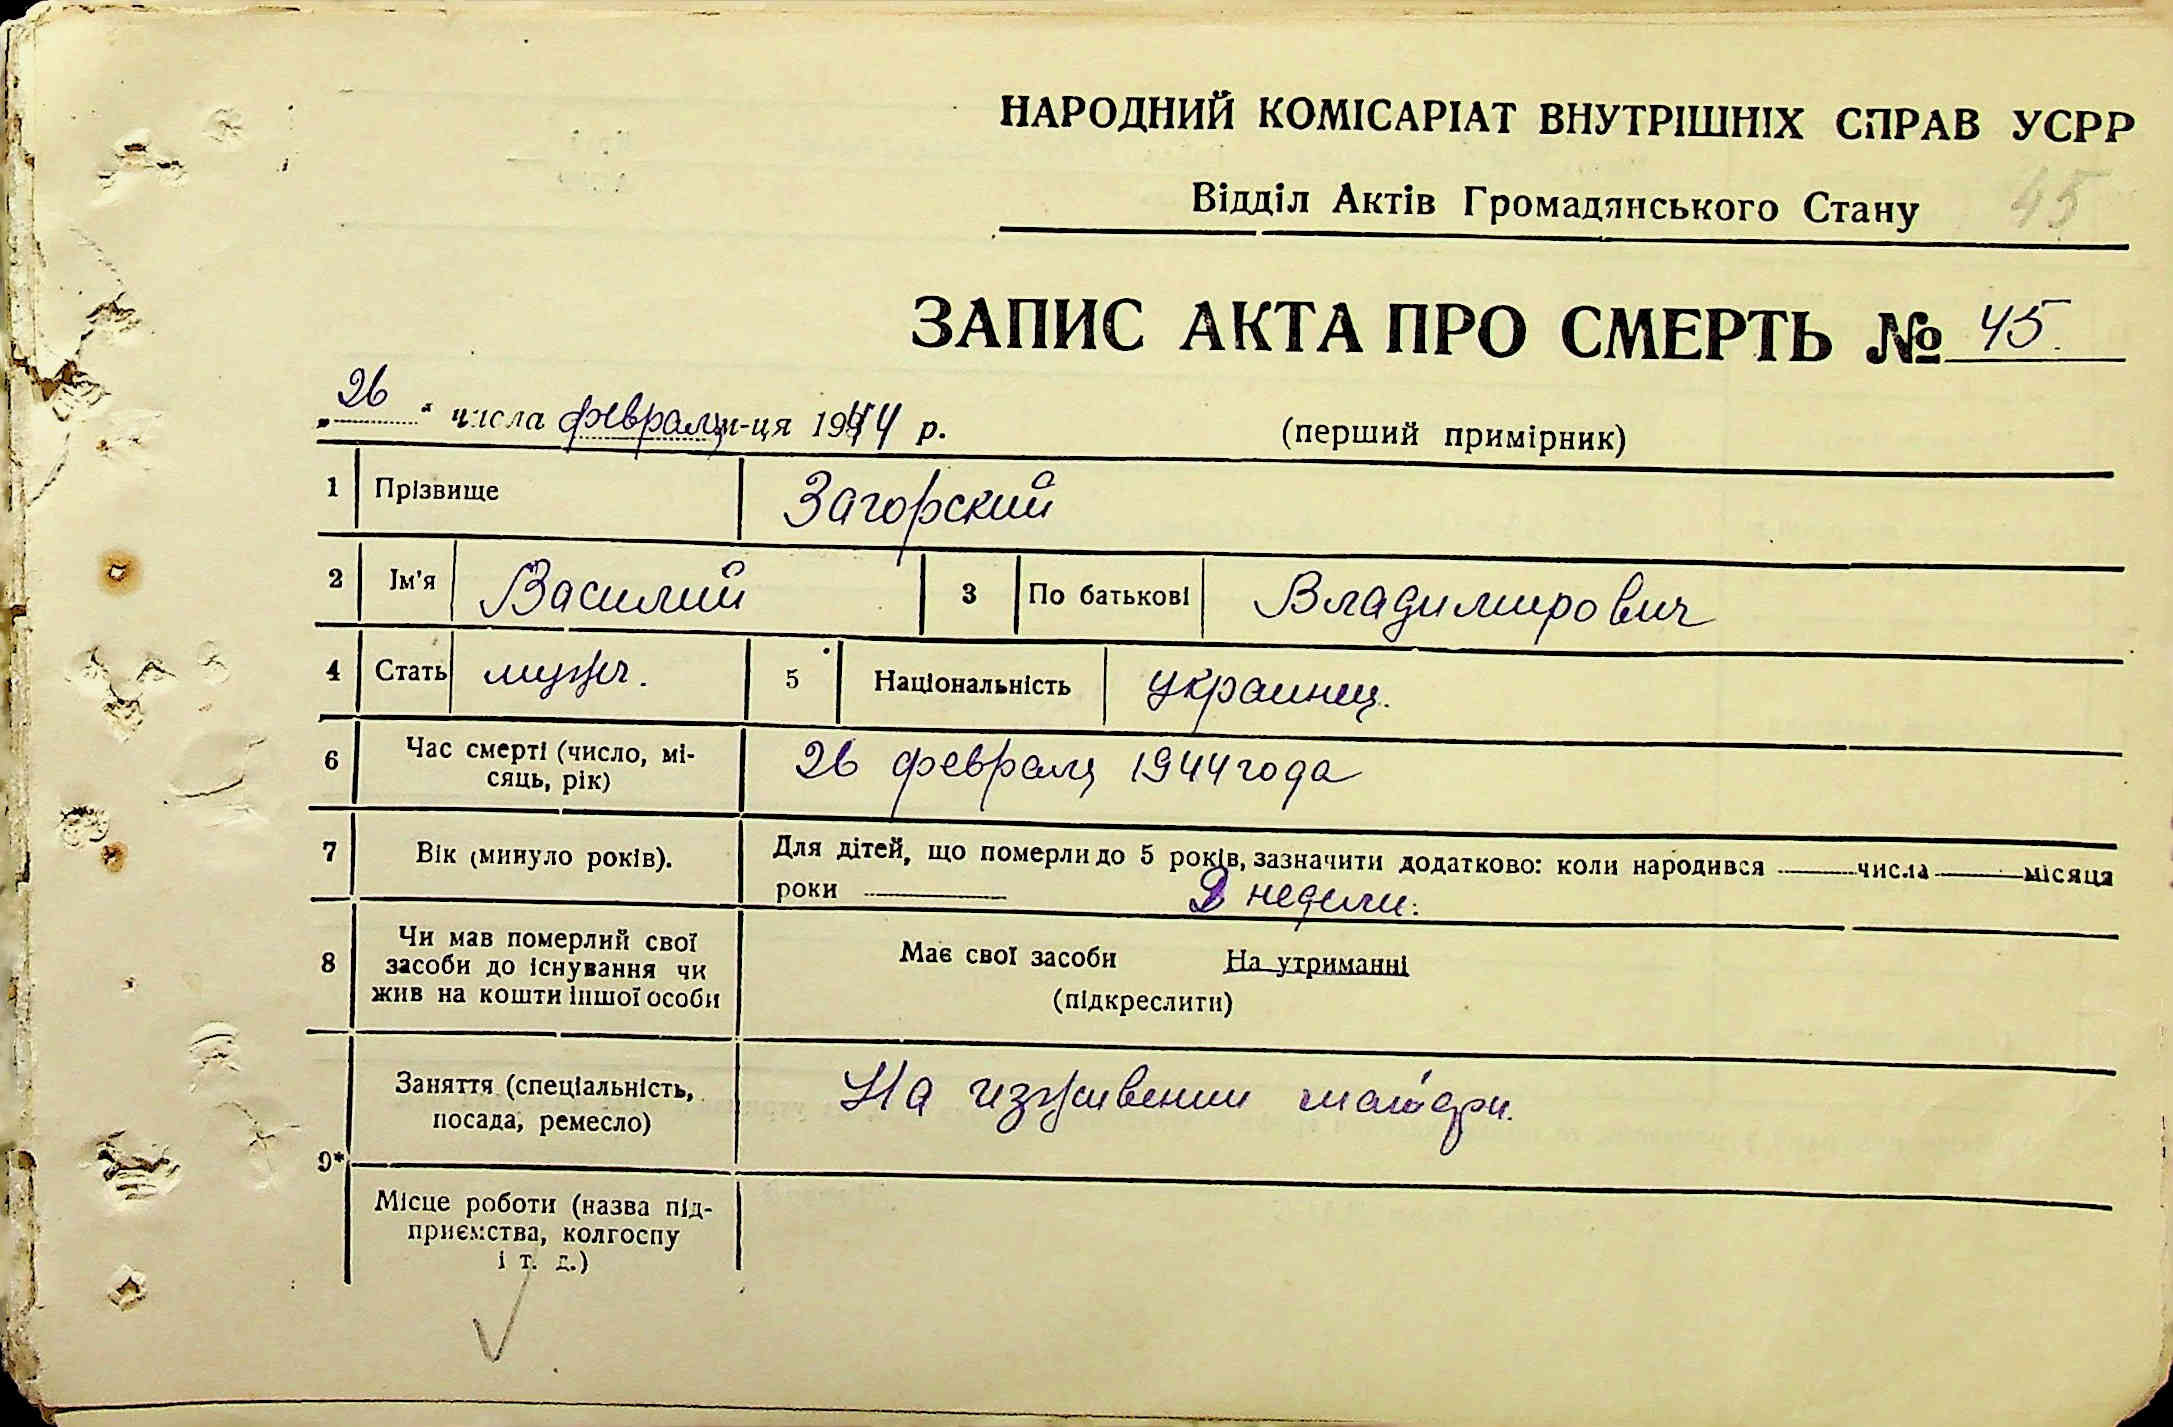 НАРОДНИЙ КОМІСАРІАТ ВНУТРІШНІХ СПРАВ УСРР
Відділ Актів Громадянського Стану 45
ЗАПИС АКТА ПРО СМЕРТЬ № 45.
„26“ числа февраля м-ця 1944 р. (перший примірник)
1 Прізвище Загорский
2 Ім'я Василий 3 По батькові Владимирович
4 Стать мужч. 5 Національність украинец.
6 Час смерті (число, мі-
сяць, рік) 26 февраля 1944 года
7 Вік (минуло років). Для дітей, що померли до 5 років, зазначити додатково: коли народився числа місяця
роки 2 недели.
8 Чи мав померлий свої
засоби до існування чи
жив на кошти іншої особи
Має свої засоби На утриманні
(підкреслити)
9*
Заняття (спеціальність,
посада, ремесло) На иждивении
Місце роботи (назва під-
приємства, колгоспу
і т. д.)